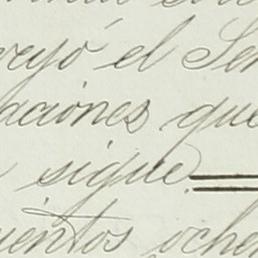 reyó el Se
aciones que
sigue
ientos oche